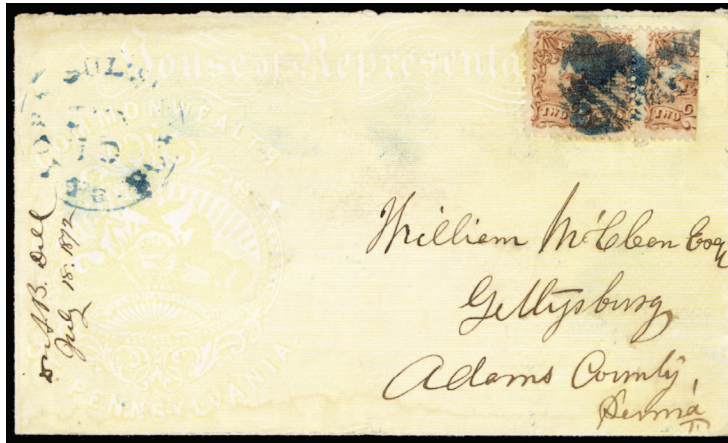 House of Representa
COMMONWEALTH
PENNSYLVANIA.
TWO
TWO
2
A.B. Dill
July 18. 1872
William McClean Esq
Gettysburg
Adams County,
Penna